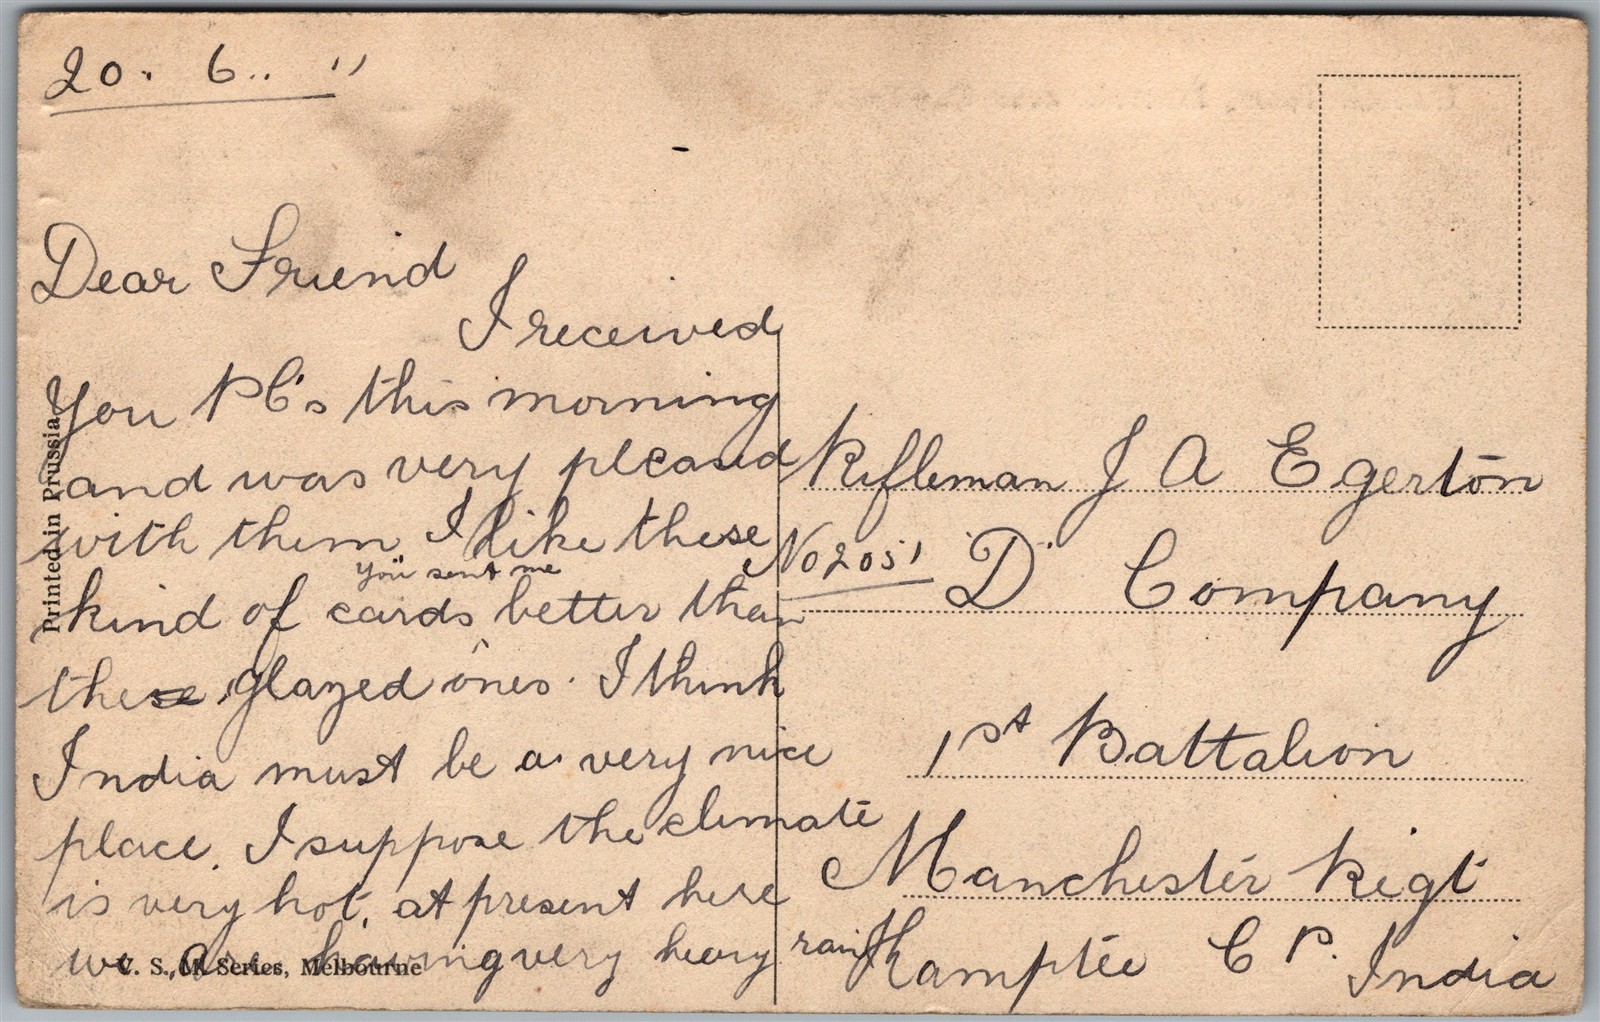 20. 6.. 11
Dear Friend
I received
You PC's this morning
and was very pleased
with them. I like these
you sent me
kind of cards better than
these glazed ones. I think
India must be a very nice
place. I suppose the climate
is very hot, at present here
we are having very heavy rain
Printed in Prussia
V. S. M. Series, Melbourne
Rifleman J A Egerton
No 2051 "D" Company
1st Battalion
Manchester Regt
Kamptee C P. India